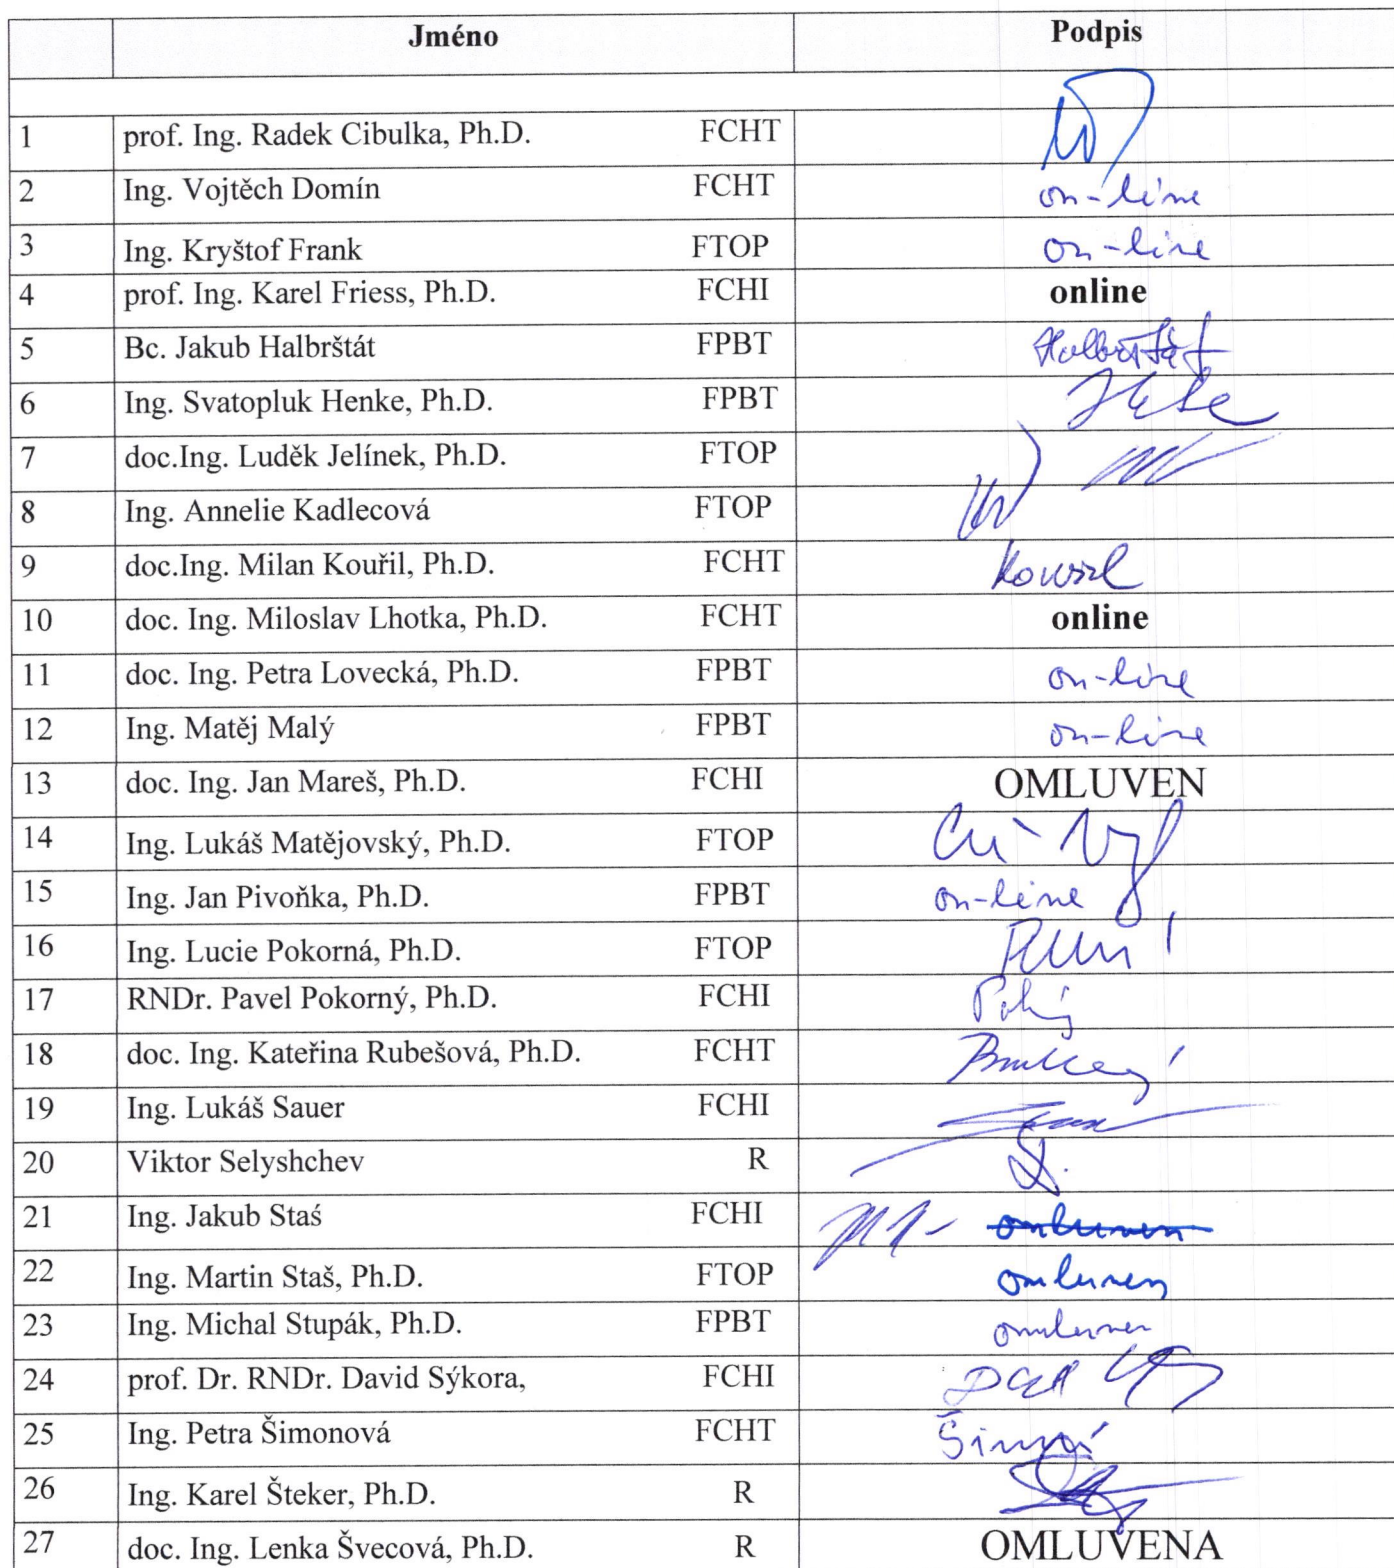 Jméno Podpis
1 prof. Ing. Radek Cibulka, Ph.D. FCHT
2 Ing. Vojtěch Domín FCHT on-line
3 Ing. Kryštof Frank FTOP on-line
4 prof. Ing. Karel Friess, Ph.D. FCHI online
5 Bc. Jakub Halbrštát FPBT Halbrštát
6 Ing. Svatopluk Henke, Ph.D. FPBT
7 doc.Ing. Luděk Jelínek, Ph.D. FTOP
8 Ing. Annelie Kadlecová FTOP
9 doc.Ing. Milan Kouřil, Ph.D. FCHT Kouřil
10 doc. Ing. Miloslav Lhotka, Ph.D. FCHT online
11 doc. Ing. Petra Lovecká, Ph.D. FPBT on-line
12 Ing. Matěj Malý FPBT on-line
13 doc. Ing. Jan Mareš, Ph.D. FCHI OMLUVEN
14 Ing. Lukáš Matějovský, Ph.D. FTOP
15 Ing. Jan Pivoňka, Ph.D. FPBT on-line
16 Ing. Lucie Pokorná, Ph.D. FTOP
17 RNDr. Pavel Pokorný, Ph.D. FCHI
18 doc. Ing. Kateřina Rubešová, Ph.D. FCHT
19 Ing. Lukáš Sauer FCHI
20 Viktor Selyshchev R
21 Ing. Jakub Staś FCHI omluven
22 Ing. Martin Staš, Ph.D. FTOP omluven
23 Ing. Michal Stupák, Ph.D. FPBT omluven
24 prof. Dr. RNDr. David Sýkora, FCHI
25 Ing. Petra Šimonová FCHT
26 Ing. Karel Šteker, Ph.D. R
27 doc. Ing. Lenka Švecová, Ph.D. R OMLUVENA